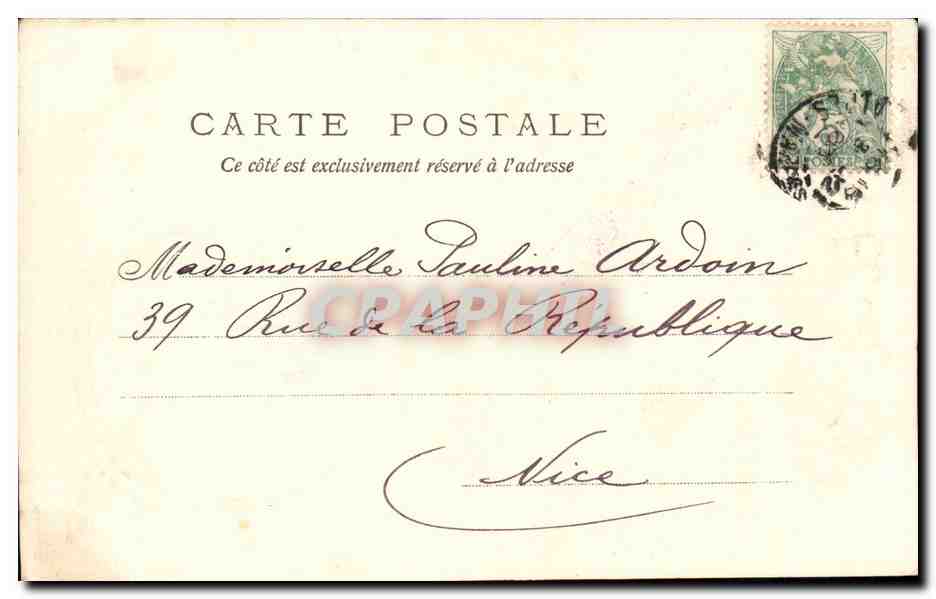 CARTE POSTALE
Ce côté est exclusivement réservé à l'adresse
Mademoiselle Pauline Ardoin
39 Rue de la Republique
Nice
CPAPHIL
POSTES